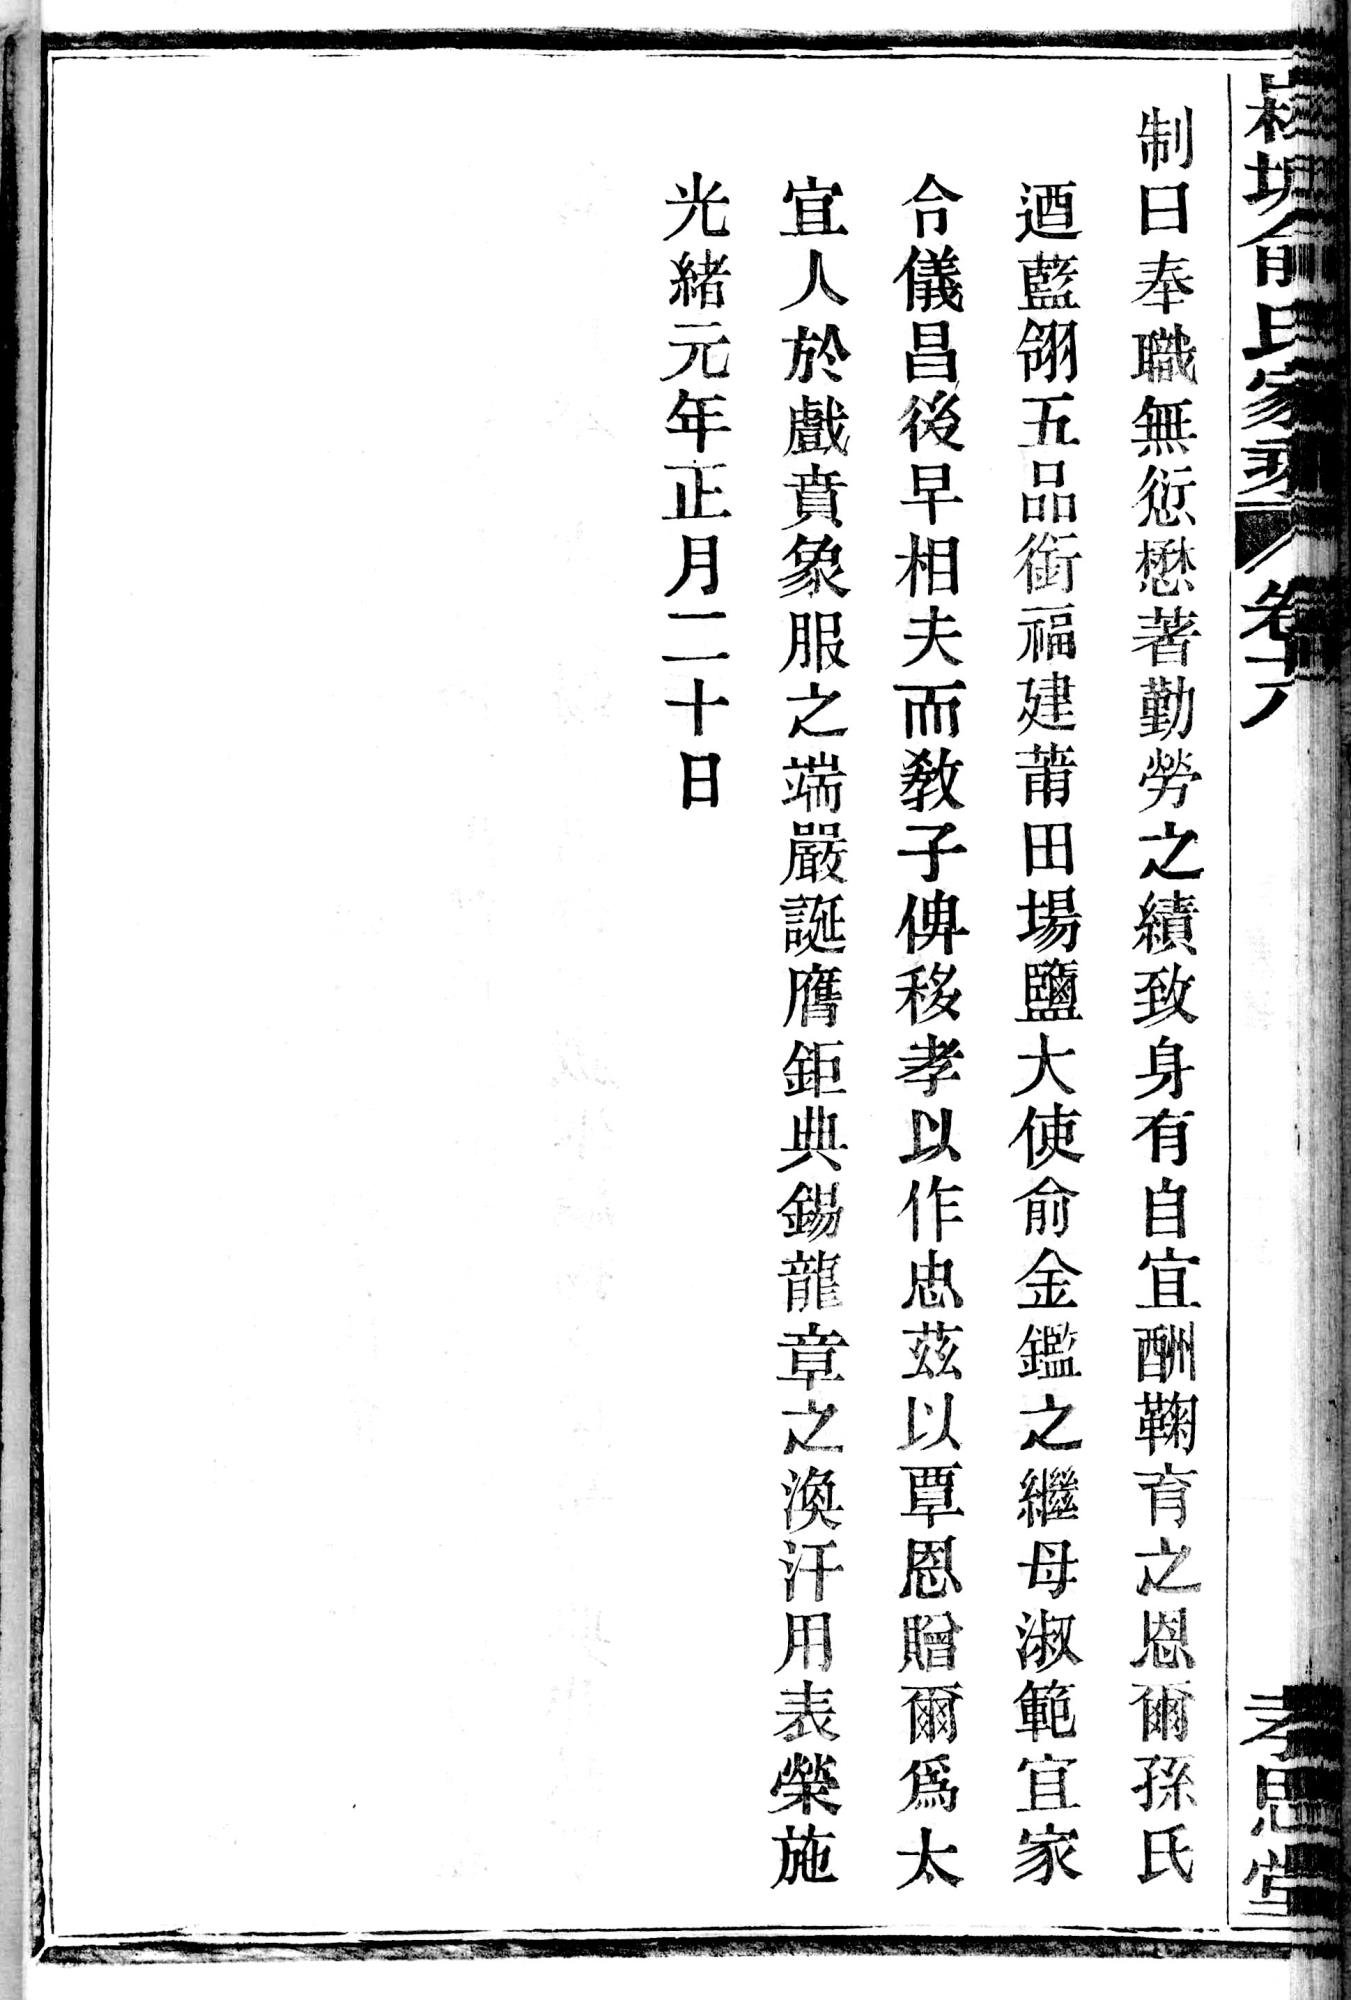 制曰奉職無愆懋著勤勞之績致身有自宜酬鞠育之恩爾孫氏
迺藍翎五品銜福建莆田場鹽大使俞金鑑之繼母淑範宜家
令儀昌後早相夫而敎子俾移孝以作忠茲以覃恩贈爾爲太
宜人於戲賁象服之端嚴誕膺鉅典錫龍章之渙汗用表榮施
光緒元年正月二十日
俞氏家乘
孝思堂